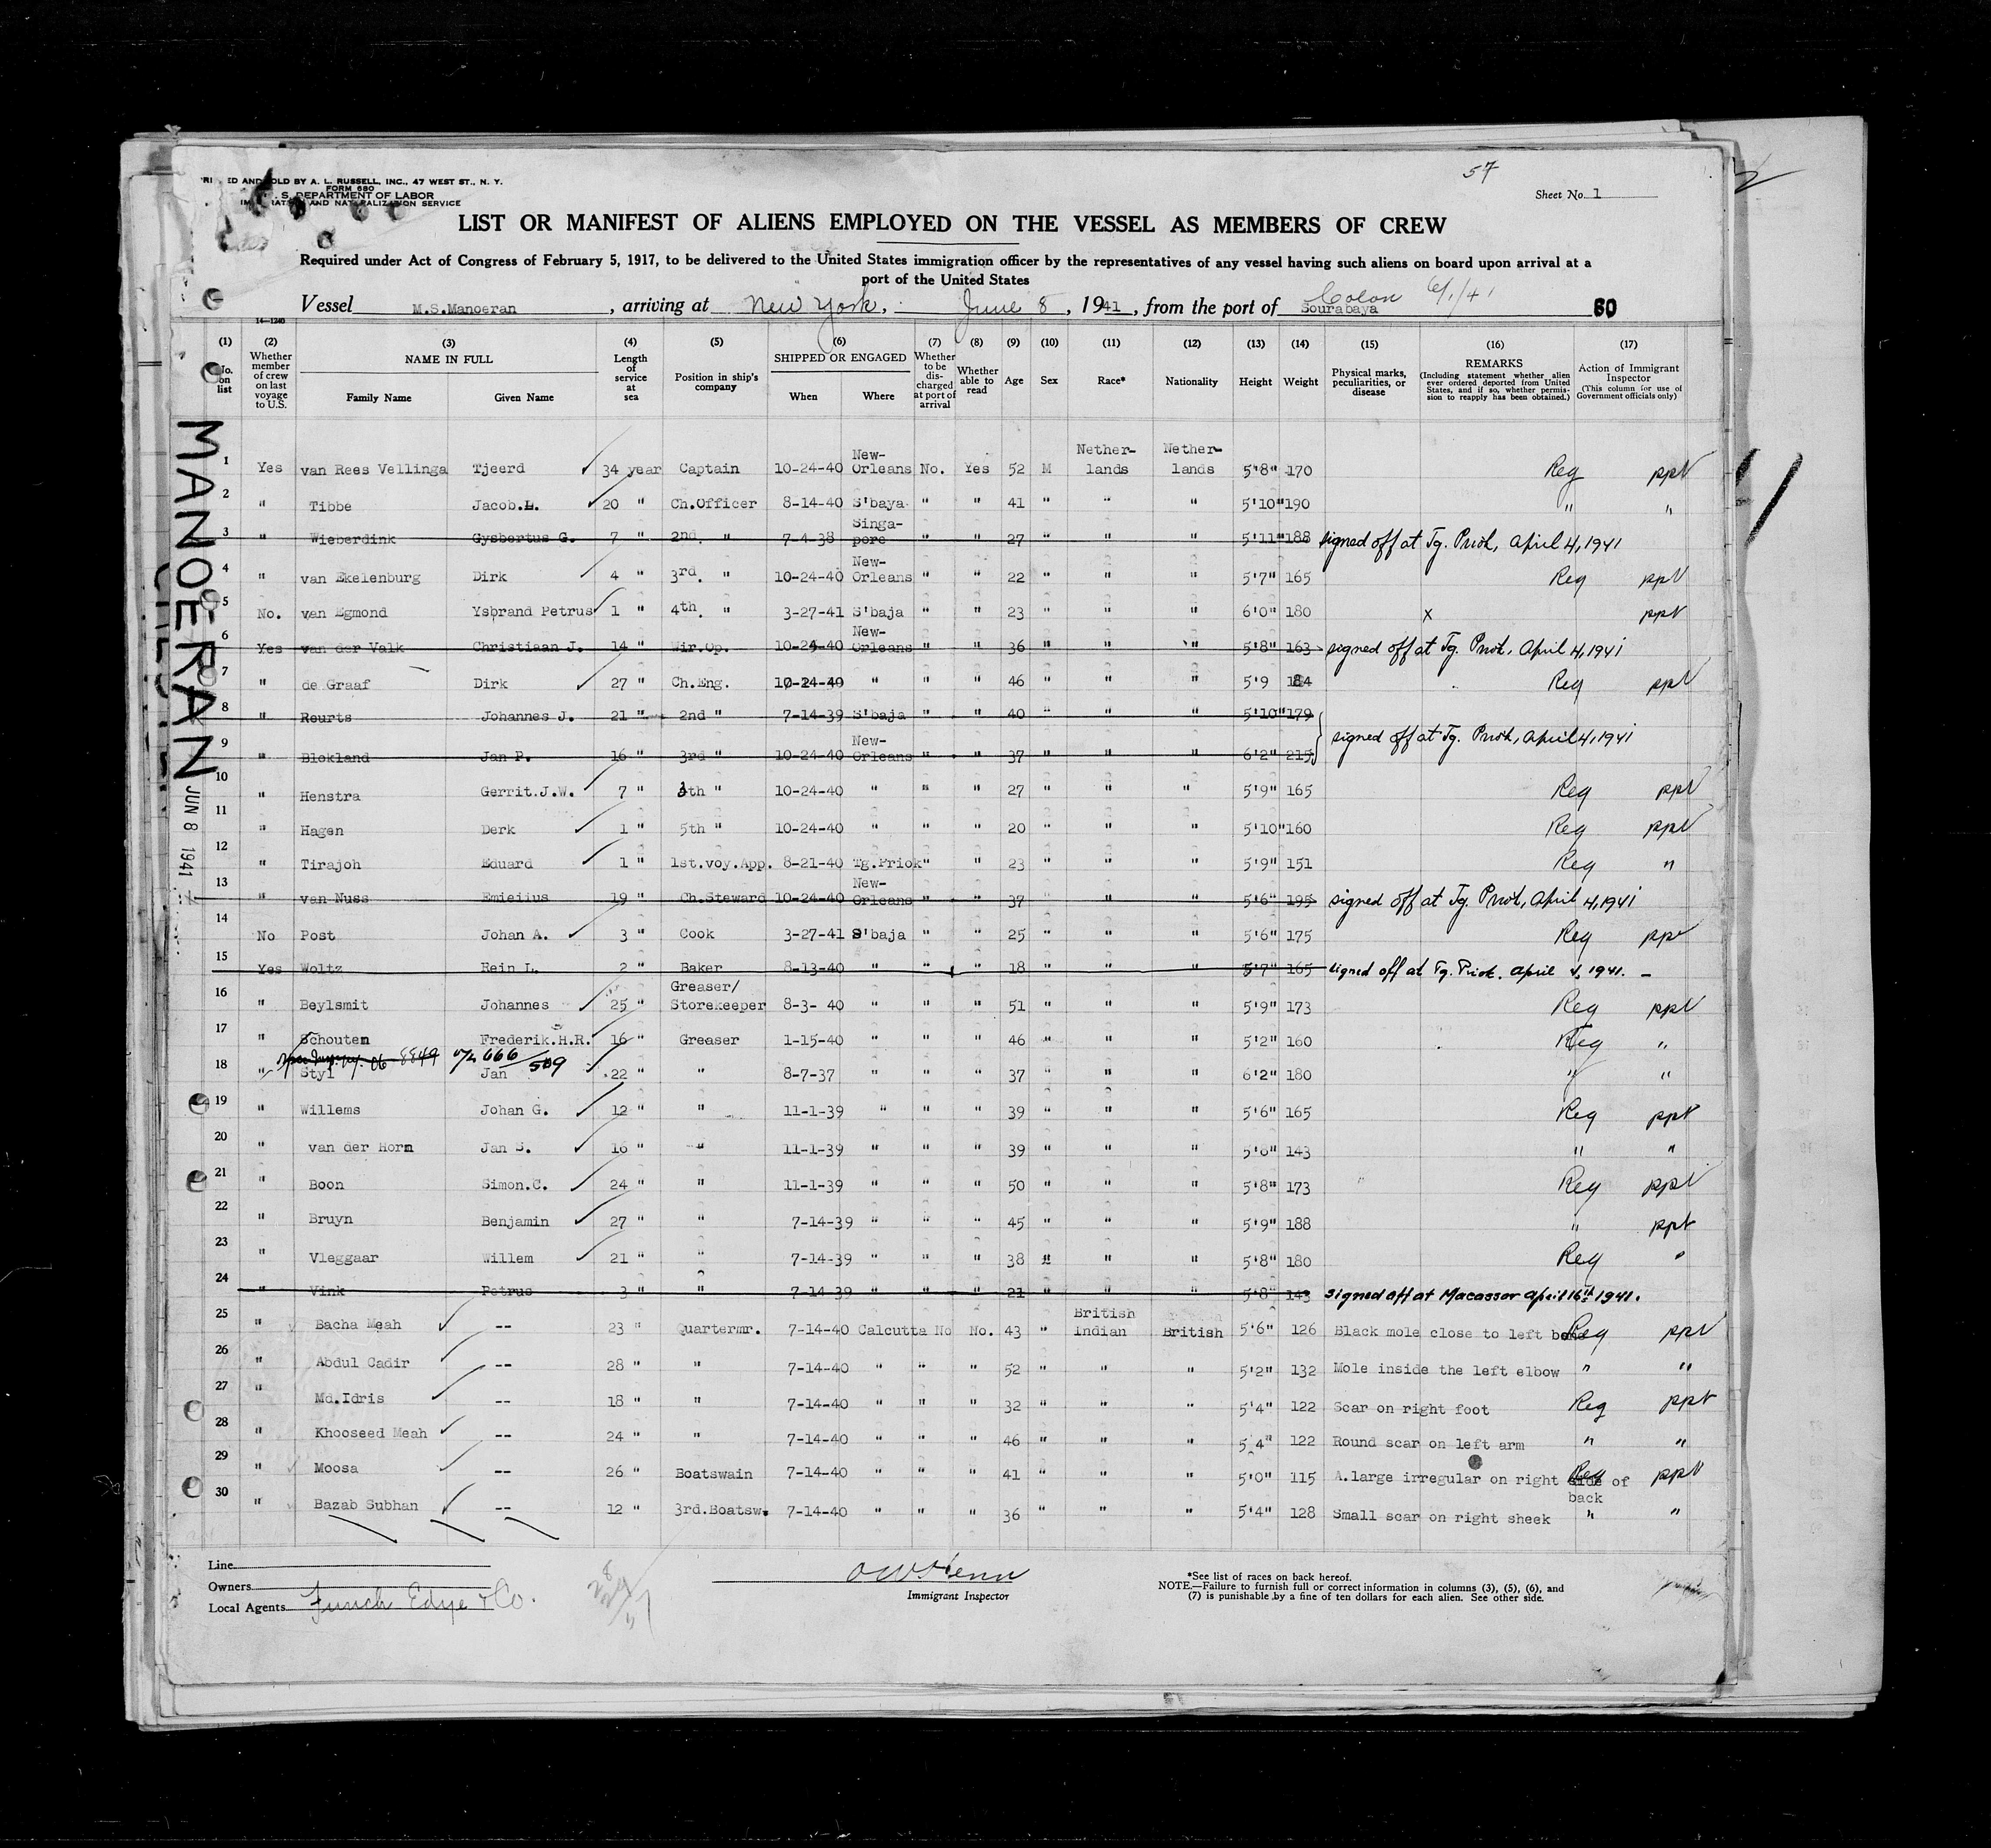 57
OLD BY A. L. RUSSELL, INC., 47 WEST ST., N. Y.
FORM 680
S. DEPARTMENT OF LABOR
AND NATURALIZATION SERVICE
Sheet No. 1
LIST OR MANIFEST OF ALIENS EMPLOYED ON THE VESSEL AS MEMBERS OF CREW
Required under Act of Congress of February 5, 1917, to be delivered to the United States immigration officer by the representatives of any vessel having such aliens on board upon arrival at a
port of the United States
Colon 6/1/41
Vessel M.S.Manoeran, arriving at New York, June 8, 1941, from the port of Sourabaya 60
14—1240
(1) (2) (3) (4) (5) (6) (7) (8) (9) (10) (11) (12) (13) (14) (15) (16) (17)
No. on list
Whether member of crew on last voyage to U.S.
NAME IN FULL
Family Name Given Name
Length of service at sea
Position in ship's company
SHIPPED OR ENGAGED
When Where
Whether to be discharged at port of arrival
Whether able to read
Age
Sex
Race*
Nationality
Height
Weight
Physical marks, peculiarities, or disease
REMARKS
(Including statement whether alien ever ordered deported from United States, and if so, whether permission to reapply has been obtained.)
Action of Immigrant Inspector
(This column for use of Government officials only)
MANOERAN
JUN 8 1941
1 Yes van Rees Vellinga Tjeerd 34 year Captain 10-24-40 New-Orleans No. Yes 52 M Nether-lands Nether-lands 5'8" 170 Reg ppt
2 " Tibbe Jacob.H. 20 " Ch.Officer 8-14-40 S'baya " " 41 " " " 5'10" 190 " "
3 " Wieberdink Gysbertus G. 7 " 2nd. " 7-4-38 Singa-pore " " 27 " " " 5'11" 188 signed off at Tg. Priok, April 4, 1941
4 " van Ekelenburg Dirk 4 " 3rd. " 10-24-40 New-Orleans " " 22 " " " 5'7" 165 Reg ppt
5 No. van Egmond Ysbrand Petrus 1 " 4th. " 3-27-41 S'baja " " 23 " " " 6'0" 180 x ppt
6 Yes van der Valk Christiaan J. 14 " Wir.Op. 10-24-40 New-Orleans " " 36 " " " 5'8" 163 signed off at Tg. Priok, April 4, 1941
7 " de Graaf Dirk 27 " Ch.Eng. 10-24-40 " " " 46 " " " 5'9 184 Reg ppt
8 " Reurts Johannes J. 21 " 2nd " 7-14-39 S'baja " " 40 " " " 5'10" 179
signed off at Tg. Priok, April 4, 1941
9 " Blokland Jan P. 16 " 3rd " 10-24-40 New-Orleans " " 37 " " " 6'2" 215
10 " Henstra Gerrit.J.W. 7 " th " 10-24-40 " " " 27 " " " 5'9" 165 Reg ppt
11 " Hagen Derk 1 " 5th " 10-24-40 " " " 20 " " " 5'10" 160 Reg ppt
12 " Tirajoh Eduard 1 " 1st.voy.App. 8-21-40 Tg.Priok " " 23 " " " 5'9" 151 Reg "
13 " van Nuss Emielius 19 " Ch.Steward 10-24-40 New-Orleans " " 37 " " " 5'6" 195 signed off at Tg. Priok, April 4, 1941
14 No Post Johan A. 3 " Cook 3-27-41 S'baja " " 25 " " " 5'6" 175 Reg ppt
15 Yes Woltz Rein L. 2 " Baker 8-13-40 " " " 18 " " " 5'7" 165 signed off at Tg. Priok. April 4, 1941.
16 " Beylsmit Johannes 25 " Greaser/Storekeeper 8-3- 40 " " " 51 " " " 5'9" 173 Reg ppt
17 " Schouten Frederik.H.R. 16 " Greaser 1-15-40 " " " 46 " " " 5'2" 160 Reg "
8849 666/509
18 " Styl Jan 22 " " 8-7-37 " " " 37 " " " 6'2" 180 " "
19 " Willems Johan G. 12 " " 11-1-39 " " " 39 " " " 5'6" 165 Reg ppt
20 " van der Horn Jan S. 16 " " 11-1-39 " " " 39 " " " 5'6" 143 " "
21 " Boon Simon.C. 24 " " 11-1-39 " " " 50 " " " 5'8" 173 Reg ppt
22 " Bruyn Benjamin 27 " " 7-14-39 " " " 45 " " " 5'9" 188 " ppt
23 " Vleggaar Willem 21 " " 7-14-39 " " " 38 " " " 5'8" 180 Reg "
24 " Vink Petrus 3 " " 7-14-39 " " " 21 " " " 5'8" 143 signed off at Macassar April 16th 1941.
25 " Bacha Meah -- 23 " Quartermr. 7-14-40 Calcutta No No. 43 " British Indian British 5'6" 126 Black mole close to left bone Reg ppt
26 " Abdul Cadir -- 28 " " 7-14-40 " " " 52 " " " 5'2" 132 Mole inside the left elbow " "
27 " Md.Idris -- 18 " " 7-14-40 " " " 32 " " " 5'4" 122 Scar on right foot Reg ppt
28 " Khooseed Meah -- 24 " " 7-14-40 " " " 46 " " " 5'4" 122 Round scar on left arm " "
29 " Moosa -- 26 " Boatswain 7-14-40 " " " 41 " " " 5'0" 115 A.large irregular on right side of back Reg ppt
30 " Bazab Subhan -- 12 " 3rd.Boatsw. 7-14-40 " " " 36 " " " 5'4" 128 Small scar on right sheek " "
Line
Owners
Local Agents Funch Edye & Co.
Immigrant Inspector
*See list of races on back hereof.
NOTE.—Failure to furnish full or correct information in columns (3), (5), (6), and
(7) is punishable by a fine of ten dollars for each alien. See other side.